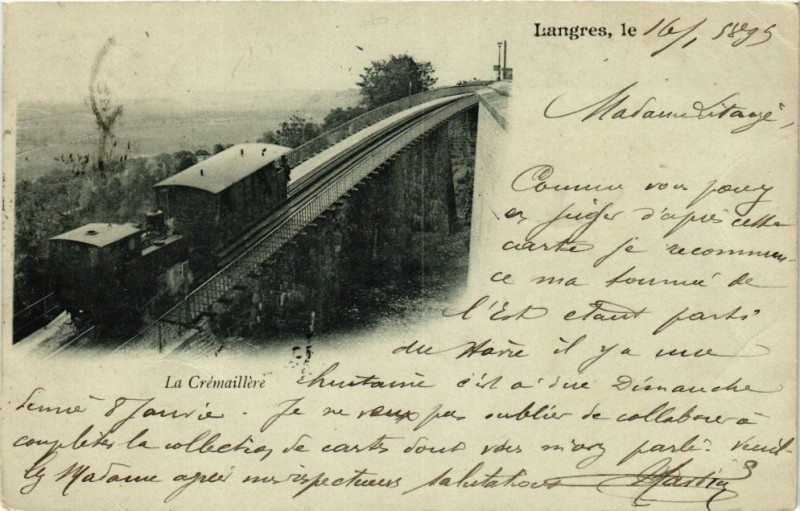 Langres, le 16/1 1899
Madame Litaugé,
Comme vous pouvez
en juger d'après cette
carte je recommen-
ce ma tournée de
l'Est étant parti
du Havre il y a une
huitaine c'est à dire Dimanche
dernié 8 Janvie. Je ne veux pas oublier de collaborer à
completer la collection de cartes dont vous m'avez parlé. Veuil-
lez Madame agréer mes respectueuses salutations
La Crémaillère
Martin